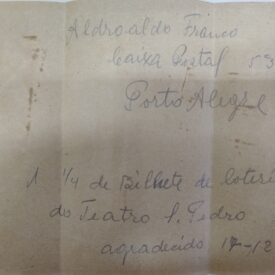 Aldroaldo Franco
Caixa Postal 53
Porto Alegre
1 1/4 de Bilhete de loteri
do Teatro S. Pedro
agradecido 17-12